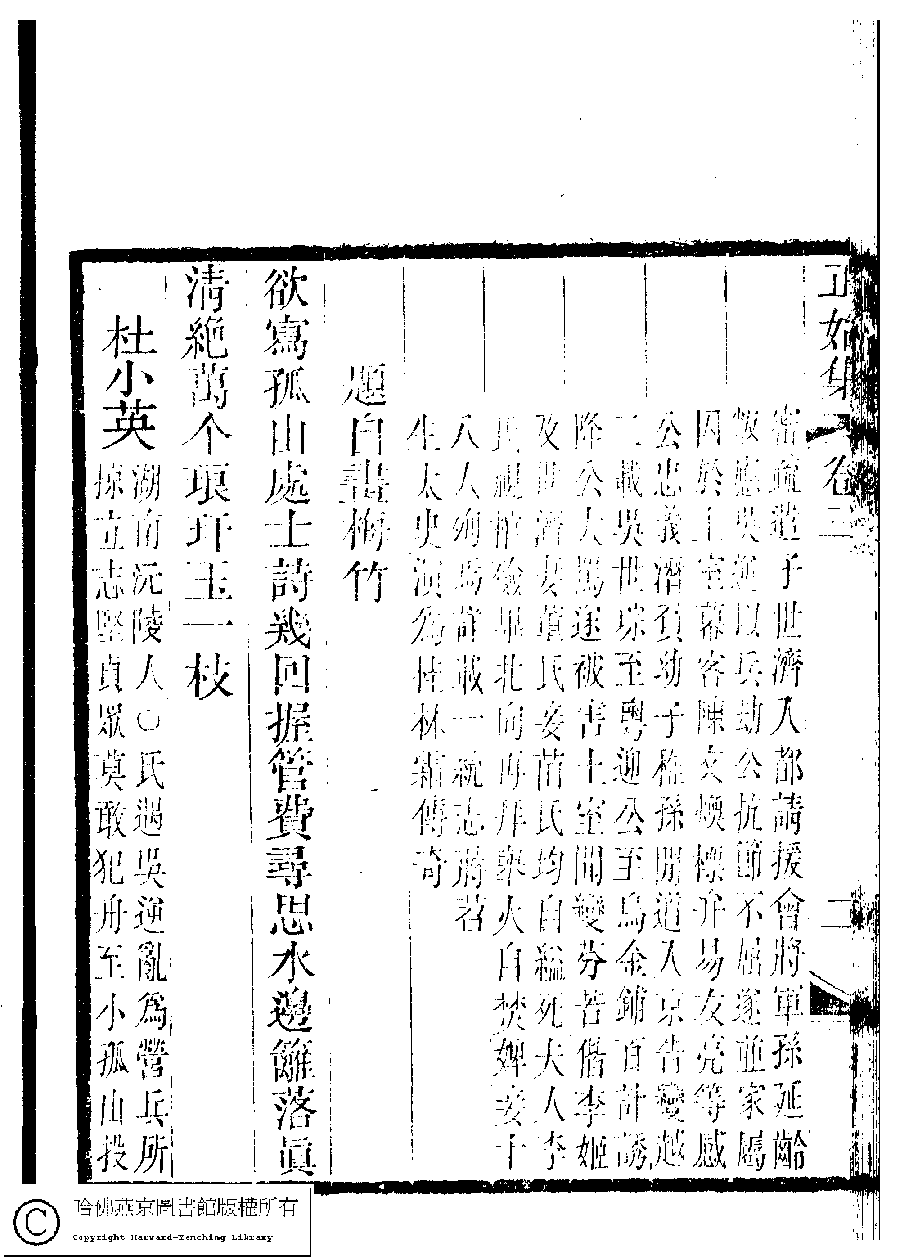 正始集 卷二 二
密疏遣子世濟入都請援會將軍孫延齡
叛應吳逆以兵劫公抗節不屈遂並家屬
囚於土室幕客陳文煥標弁易友亮等感
公忠義濟負幼子穉孫閒道入京告變越
二載吳世琮至粵迎公至烏金鋪百計誘
降公大罵遂被害土室聞變芬苔偕李姬
及世濟妻董氏妾苗氏均自縊死夫人李
氏視棺殮畢北向再拜舉火自焚婢妾十
八人殉焉詳載一統志蔣苕
生太史演為桂林霜傳奇
題自畫梅竹
欲寫孤山處士詩幾回握管費尋思水邊籬落眞
清絕萬个琅玕玉一枝
杜小英
湖南沅陵人○氏遇吳逆亂為營兵所
掠立志堅貞眾莫敢犯舟至小孤山投
哈佛燕京圖書館版權所有
Copyright Harvard-Yenching Library